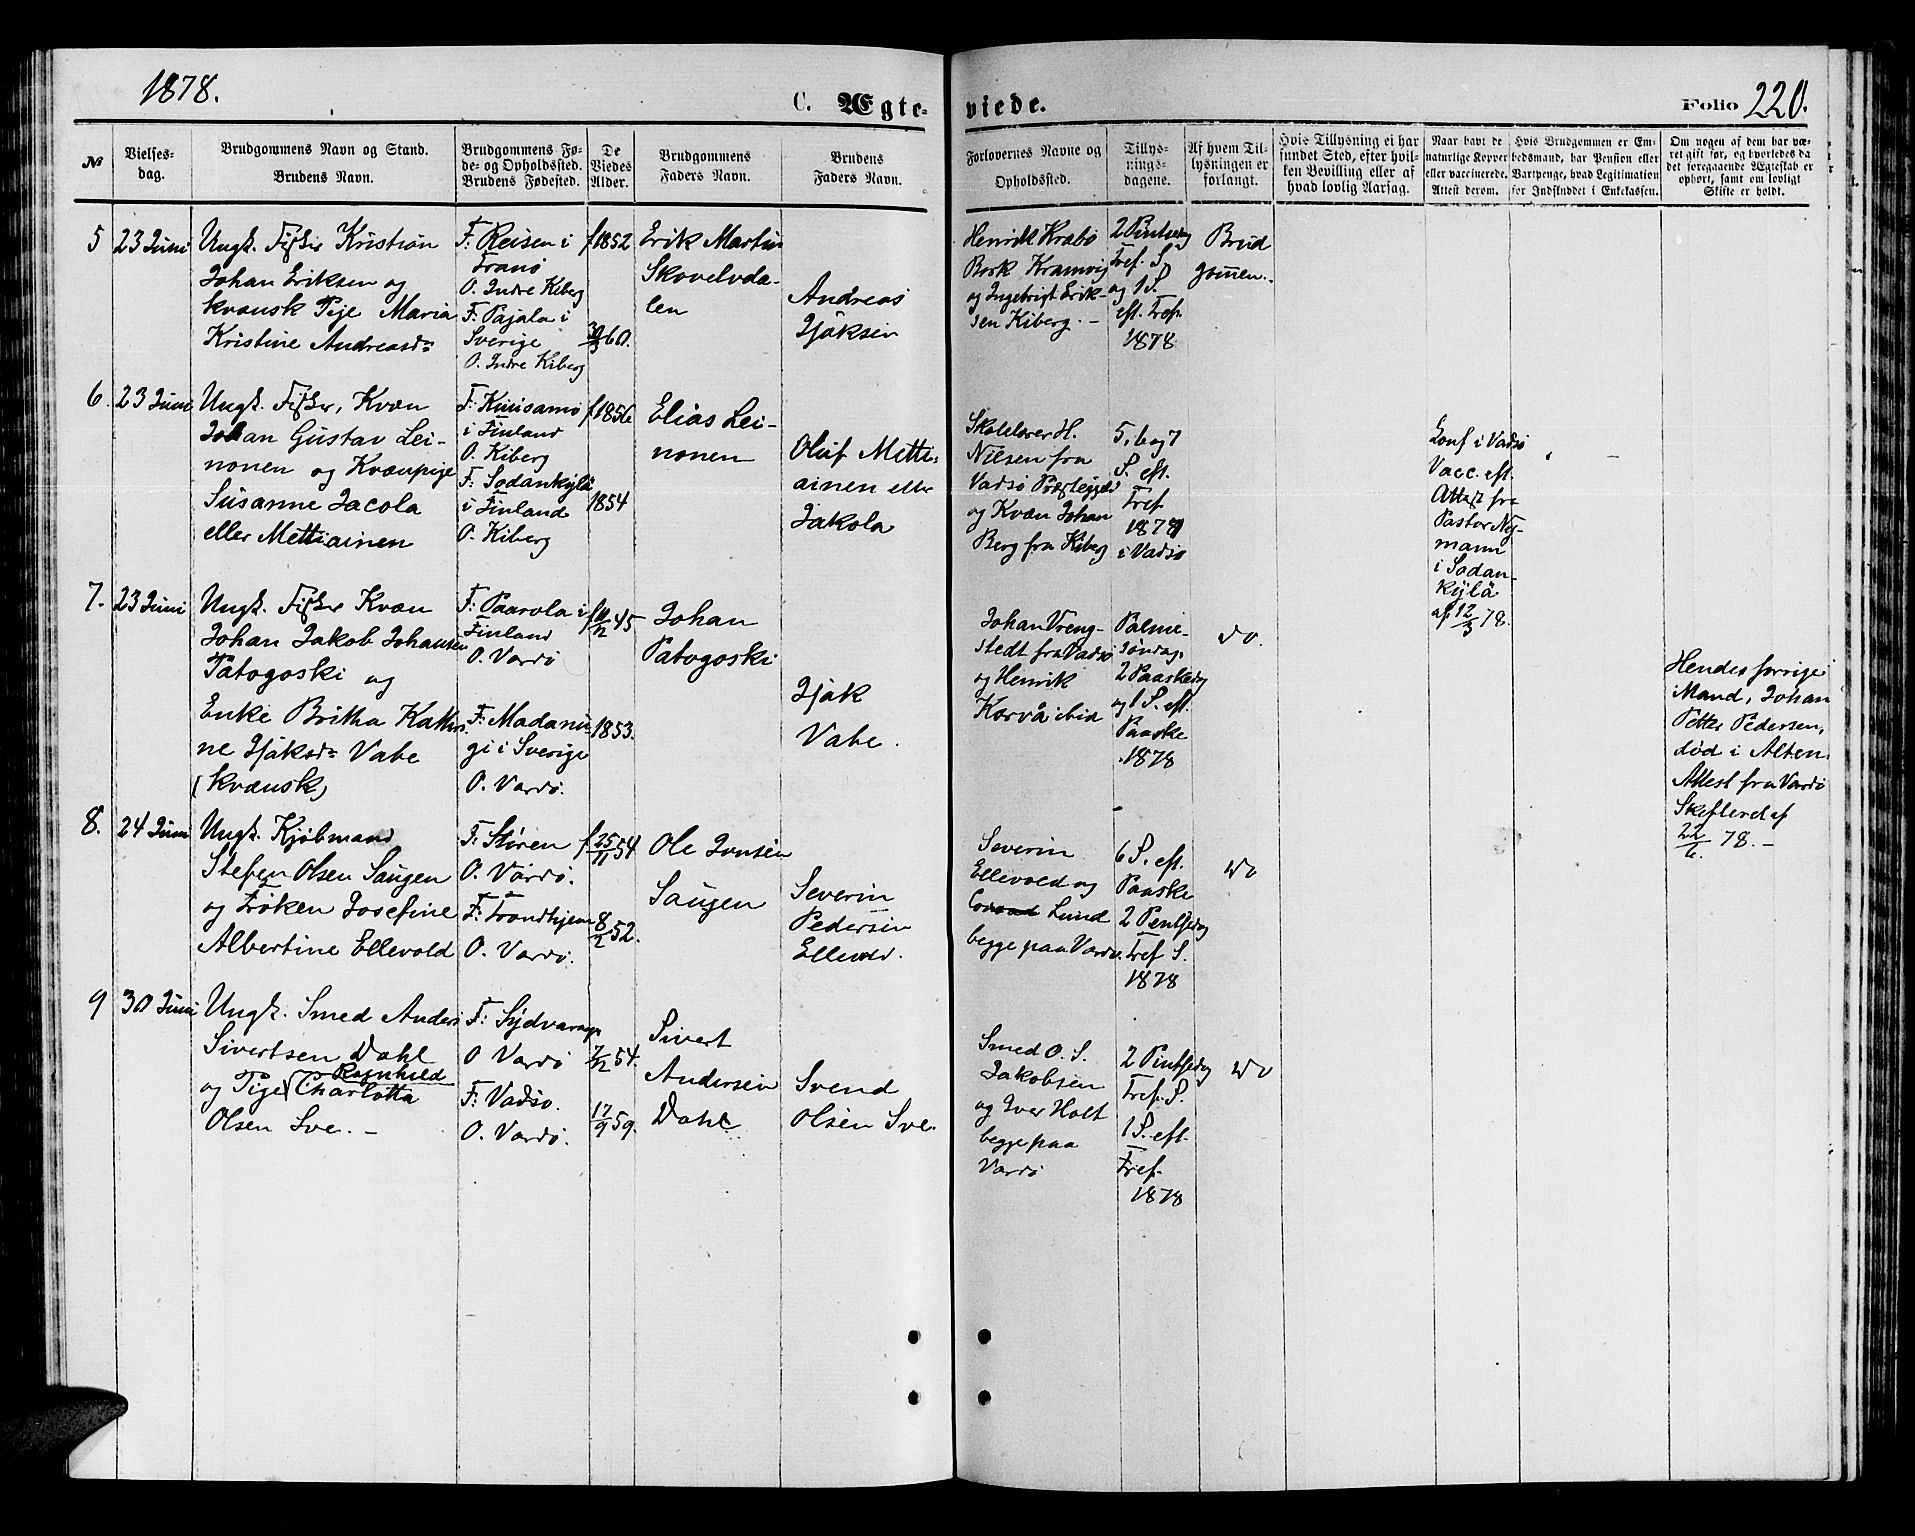 1878.
C. Ægte-
viede.
Folio 220.
№
Vielses-
dag.
Brudgommens Navn og Stand.
Brudens Navn.
Brudgommens Fø-
de- og Opholdssted.
Brudens Fødested.
De
Viedes
Alder.
Brudgommens
Faders Navn.
Brudens
Faders Navn.
Forlovernes Navne og
Opholdssted.
Tillys-
nings-
dagene.
Af hvem Til-
lysningen er
forlangt.
Hvis Tillysning ei har
fundet Sted, efter hvil-
ken Bevilling eller af
hvad lovlig Aarsag.
Naar havt de
naturlige Kopper
eller vaccinerede.
Attest derom.
Hvis Brudgommen er Em-
bedsmand, har Pension eller
Vartpenge, hvad Legitimation
for Indskuddet i Enkekassen.
Om nogen af dem har væ-
ret gift før, og hvorledes da
det foregaaende Ægteskab er
ophørt, samt om lovligt
Skifte er holdt.
5
23 Juni
Ungk. Fisker Kristian
Johan Eriksen og
kvænsk Pige Maria
Kristine Andreasd=
F: Reisen i
Tranø
O. Indre Kiberg
F: Pajala i
Sverige
O. Indre Kiberg
f 1852
60.
Erik Martin
Skovelvda-
len
Andreas
Isaksen
Henrik Krabø
Bork Kramvig
og Ingebrigt Erik-
sen Kiberg. -
2 Pintsedag
Tref. S.
og 1 S.
eft. Tref.
1878
Brud
gommen.
6.
23 Juni
Ungk. Fisker, Kvæn
Johan Gustav Lei-
nonen og Kvænpige
Susanne Jacola
eller Mettiainen
F: Kuusamo
i Finland
O. Kiberg
F: Sodankylä
i Finland
O. Kiberg
f 1856
1854
Elias Lei-
nonen
Oluf Metti-
ainen eller
Jakola
Skolelærer H.
Nilsen fra
Vadsø Præstegjeld
og Kvæn Johan
Berg fra Kiberg
5, 6 og 7
S. eft.
Tref
1878
i Vadsø
Konf i Vadsø
Vacc. eft.
Attest fra
Pastor Ny-
mann
i Sodan-
kylä
af 12/3 78.
7.
23 Juni
Ungk. Fisker Kvæn
Johan Jakob Johansen
Patogoski og
Enke Britha Kathri-
ne Isaksd= Vabe
(kvænsk)
F: Paavola i
Finland
O. Vardø
F: Madanu-
gi i Sverige
O. Vardø.
45
1853.
Johan
Patogoski
Isak
Vabe.
Johan Vreng-
stedt fra Vadsø
og Henrik
Korvå ibid
Palme-
søndag.
2 Paaskedag
og 1 S. eft.
Paaske
1878
do.
Hendes forrige
Mand, Johan
Petter Pedersen,
død i Alten.
Attest fra Vardø
Skifteret af
22/6. 78. -
8.
24 Juni
Ungk. Kjøbmand
Stefen Olsen Saugen
og Frøken Josefine
Albertine Ellevold
F: Støren
O. Vardø.
F: Trondhjem
O. Vardø.
f 25/11 54
8/2 52.
Ole Jonsen
Saugen
Severin
Pedersen
Ellevold.
Severin
Ellevold og
Lund
begge paa Vardø.
6 S. eft.
Paaske
2 Pentsedag
Tref S.
1878
do
9
30 Juni
Ungk. Smed Anders
Sivertsen Dahl
Ragnhild
og Pige Charlotta
Olsen Sve. -
F: Sydvaranger
O Vardø
F: Vadsø.
O. Vardø.
7/12 54.
17/9 59.
Sivert
Andersen
Dahl
Svend
Olsen Sve.
Smed O. S.
Jakobsen
og Iver Holt
begge paa
Vardø
2 Pintsedag
Tref. S.
1 S. eft.
Tref.
1878
do